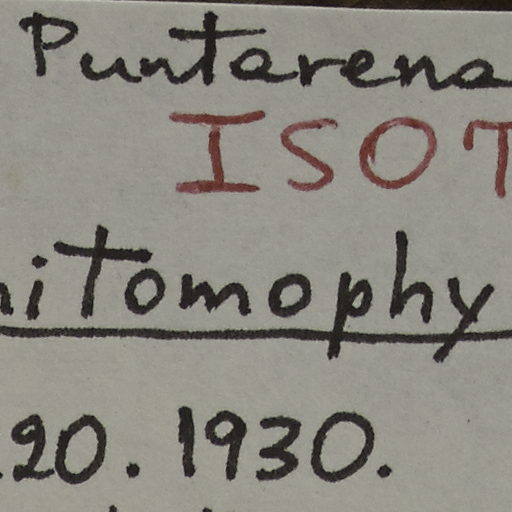 Puntarena
ISOT
nitomophy
20. 1930.